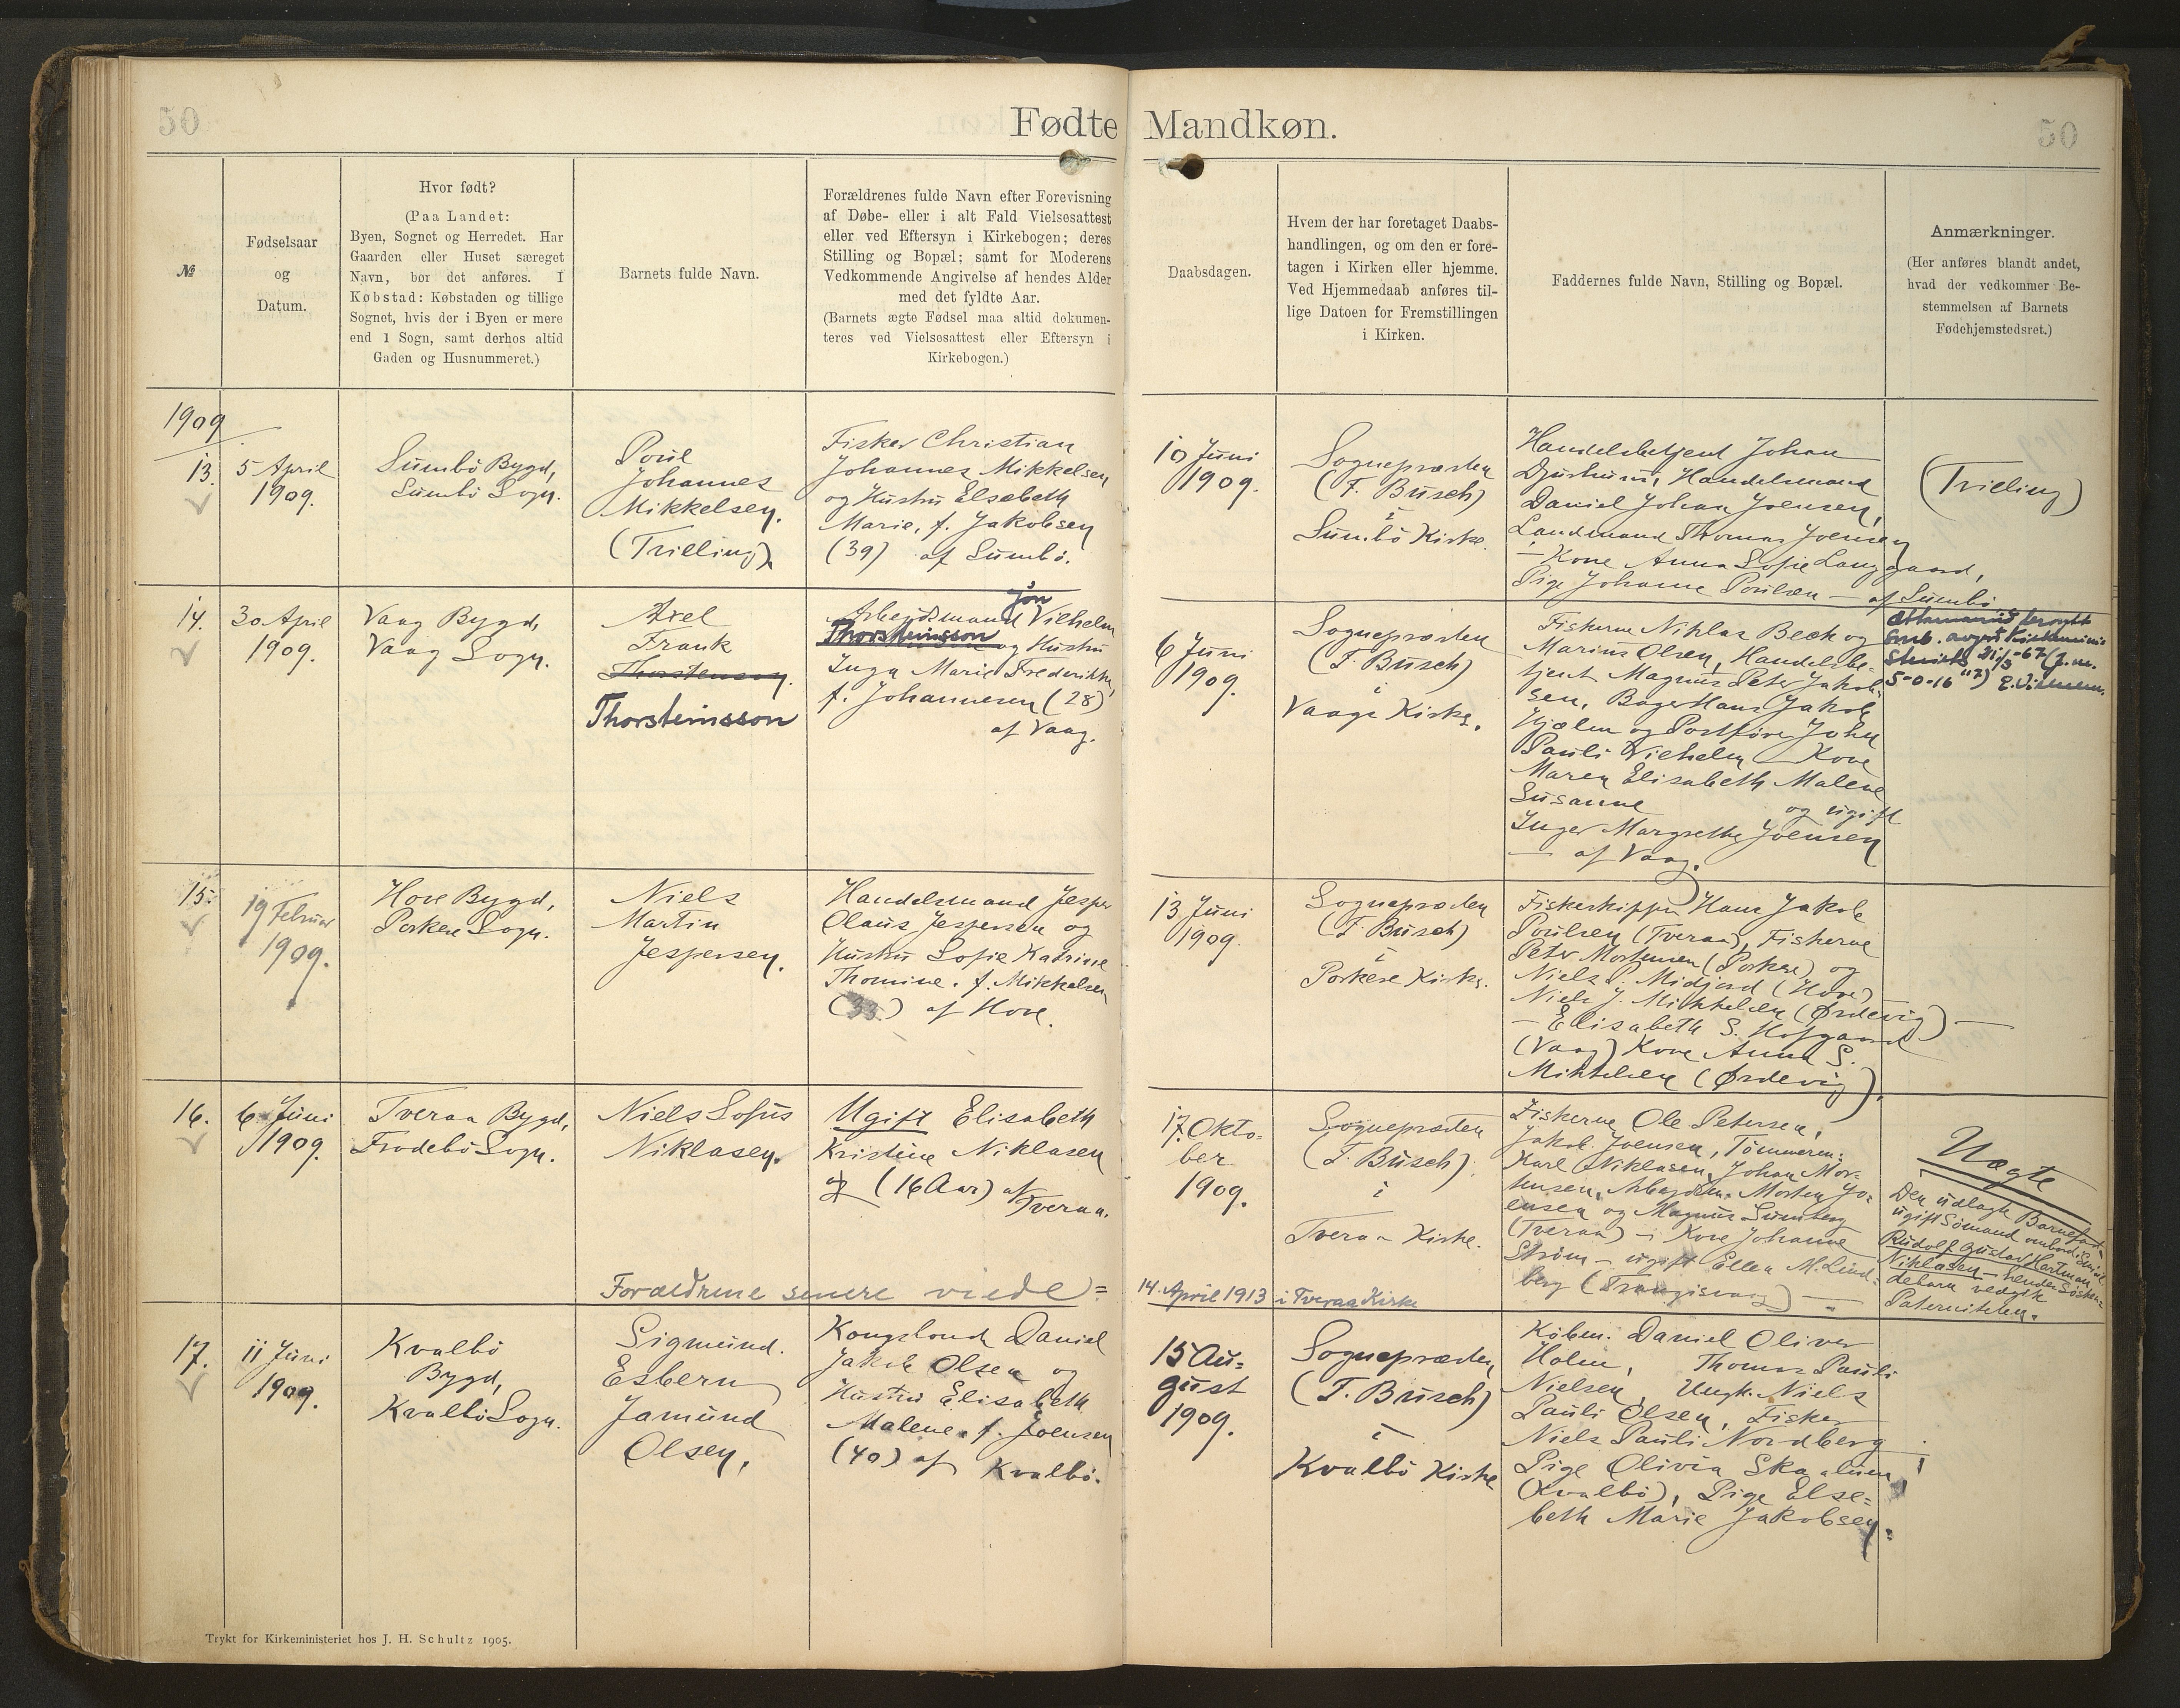 50
Fødte Mandkøn.
50
№
Fødselsaar
og
Datum.
Hvor født?
(Paa Landet:
Byen, Sognet og Herredet. Har
Gaarden eller Huset særeget
Navn, bør det anføres. I
Købstad: Købstaden og tillige
Sognet, hvis der i Byen er mere
end 1 Sogn, samt derhos altid
Gaden og Husnummeret.)
Barnets fulde Navn.
Forældrenes fulde Navn efter Forevisning
af Døbe- eller i alt Fald Vielsesattest
eller ved Eftersyn i Kirkebogen; deres
Stilling og Bopæl; samt for Moderens
Vedkommende Angivelse af hendes Alder
med det fyldte Aar.
(Barnets ægte Fødsel maa altid dokumen-
teres ved Vielsesattest eller Eftersyn i
Kirkebogen.)
Daabsdagen.
Hvem der har foretaget Daabs-
handlingen, og om den er fore-
tagen i Kirken eller hjemme.
Ved Hjemmedaab anføres til-
lige Datoen for Fremstillingen
i Kirken.
Faddernes fulde Navn, Stilling og Bopæl.
Anmærkninger.
(Her anføres blandt andet,
hvad der vedkommer Be-
stemmelsen af Barnets
Fødehjemstedsret.)
1909
13.
5 April
1909.
Sumbö Bygd,
Sumbö Sogn.
Poul
Johannes
Mikkelsen.
(Trilling)
Fisker Christian
Johannes Mikkelsen
og Hustru Elsebeth
Marie, f. Jakobsen
(39) af Sumbö.
10 Juni
1909.
Sognepræsten
(F. Busch)
i
Sumbö Kirke.
Handelsbetjent Johan
Djurhuus, Handelsmand
Daniel Johan Joensen,
Landmand Thomas Joensen
— Kone Anna Sofie Langgaard,
Pige Johanne Poulsen — af Sumbö
(Trilling)
14.
30 April
1909.
Vaag Bygd,
Vaag Sogn.
Axel
Frank
Thorstensen.
Thorsteinsson
Jón
Arbejdsmand Vilhelm
Thorsteinsson og Hustru
Inga Marie Frederikke,
f. Johannesen (28)
af Vaag.
6 Juni
1909.
Sognepræsten
(F. Busch)
i
Vaags Kirke.
Fiskerne Niklas Beck og
Marius Olsen, Handelsbe-
tjent Magnus Peter Jakob-
sen, Bager Hans Jakob
Hjelm og Postfører John
Pauli Vilhelm — Kone
Maren Elisabeth Malene
Susanne og ugift
Inger Margrethe Joensen
— af Vaag.
31/3-67
15.
19 Februar
1909.
Hove Bygd,
Porkere Sogn.
Niels
Martin
Jespersen.
Handelsmand Jesper
Olaus Jespersen og
Hustru Sofie Katrine
Thomine, f. Mikkelsen
(33) af Hove.
13 Juni
1909.
Sognepræsten
(F. Busch)
i
Porkere Kirke.
Fiskerskipper Hans Jakob
Poulsen (Tveraa), Fiskerne
Peter Mortensen (Porkere) og
Niels P. Midjord (Hove)
Niels J. Mikkelsen (Ørdevig) —
— Elisabeth S. Hofgaard
(Vaag) Kone Anna S.
Mikkelsen (Ørdevig).
16.
6 Juni
1909.
Tveraa Bygd,
Frodebö Sogn.
Niels Sofus
Niklasen.
Ugift Elisabeth
Kristine Niklasen
(16 Aar) af
Tveraa.
17. Okto-
ber
1909.
Sognepræsten
(F. Busch)
i
Tveraa Kirke.
Fiskerne Ole Petersen,
Jakob Joensen, Tømmerm.
Karl Niklasen, Johan Mor-
tensen, Arbejdsm. Morten Jo-
ensen og Magnus Sumberg
(Tveraa) — Kone Johanne
Strøm — ugift Ellen M. Lind-
berg (Trangisvaag) —
Uægte
Den udlagte Barnefad-
ugift Sømand
Rudolf Gustav Hartman
Niklasen — hendes Søsken-
debarn vedgik
Paterniteten.
Forældrene senere viede =
14. April 1913 i Tveraa Kirke
17.
11 Juni
1909.
Kvalbö
Bygd,
Kvalbö Sogn.
Sigmund.
Esbern
Jamund
Olsen.
Kongsbonde Daniel
Jakob Olsen og
Hustru Elisabeth
Malene, f. Joensen
(40) af Kvalbö.
15 Au-
gust
1909.
Sognepræsten
(F. Busch)
i
Kvalbö Kirke
Købm. Daniel Oliver
Holm, Thomas Pauli
Nielsen, Ungk. Niels
Pauli Olsen, Fisker
Niels Pauli Nordberg
Pige Olivia
(Kvalbö), Pige Else-
beth Marie Jakobsen.
Trykt for Kirkeministeriet hos J. H. Schultz 1905.